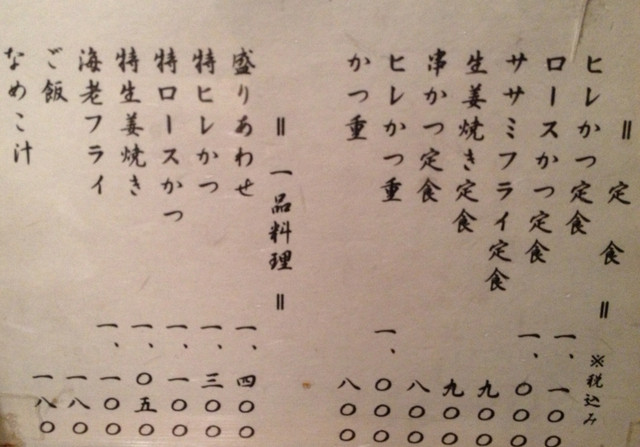 ＝ 定食 ＝ ※税込み
ヒレかつ定食 一、一〇〇
ロースかつ定食 一、〇〇〇
ササミフライ定食 九〇〇
生姜焼き定食 九〇〇
串かつ定食 八〇〇
ヒレかつ重 一、〇〇〇
かつ重 八〇〇
＝ 一品料理 ＝
盛りあわせ 一、四〇〇
特ヒレかつ 一、三〇〇
特ロースかつ 一、一〇〇
特生姜焼き 一、〇五〇
海老フライ 一、一〇〇
ご飯 一八〇
なめこ汁 一八〇